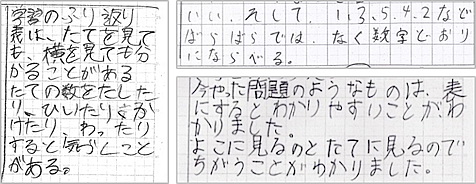 学習のふり返り
表は、たてを見て
も、横を見ても分
かることがある
たての数をたした
り、ひいたり、か
けたり、わったり
すると気づくこと
がある。
いい、そして、1、3、5、4、2など
ばらばらでは、なく数字どおり
にならべる。
今やった問題のようなものは、表
にするとわかりやすいことが、わ
かりました。
よこに見るのとたてに見るので
ちがうことがわかりました。